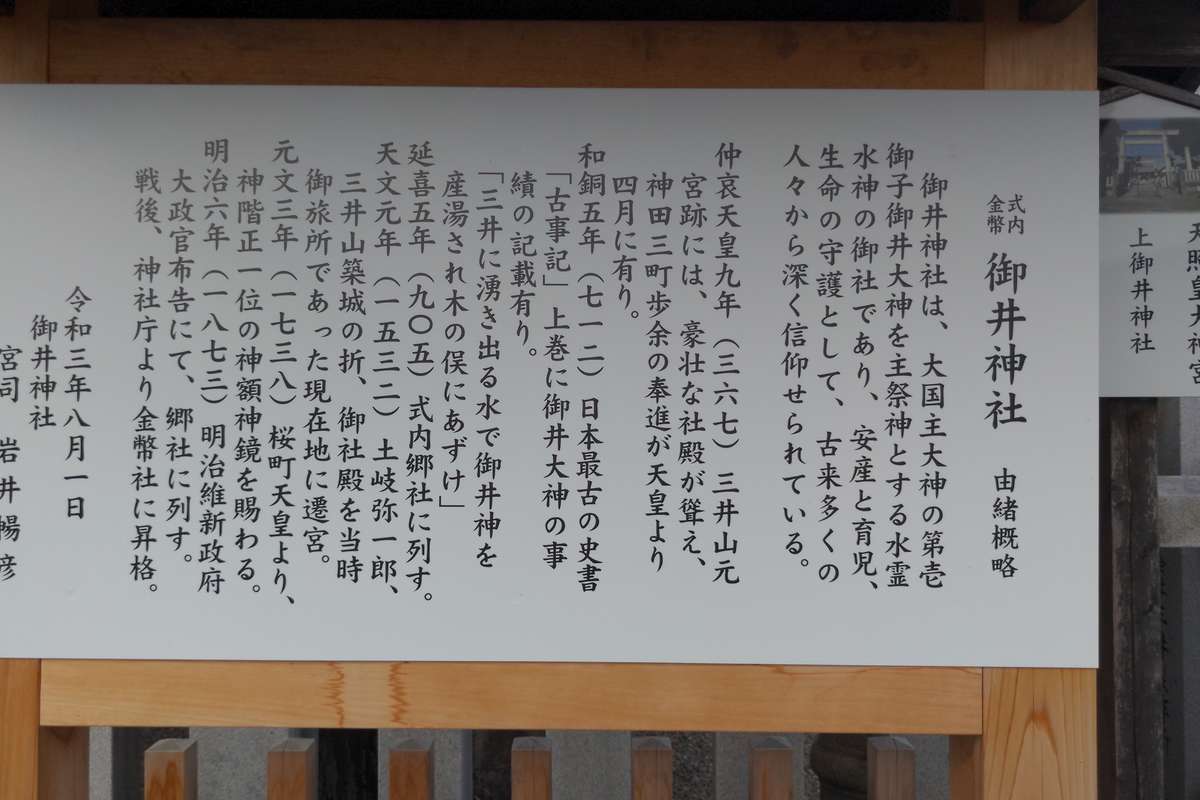 式内
金幣
御井神社 由緒概略
御井神社は、大国主大神の第壱
御子御井大神を主祭神とする水霊
水神の御社であり、安産と育児、
生命の守護として、古来多くの
人々から深く信仰せられている。
仲哀天皇九年（三六七）三井山元
宮跡には、豪壮な社殿が聳え、
神田三町歩余の奉進が天皇より
四月に有り。
和銅五年（七一二）日本最古の史書
「古事記」上巻に御井大神の事
績の記載有り。
「三井に湧き出る水で御井神を
産湯され木の俣にあずけ」
延喜五年（九〇五）式内郷社に列す。
天文元年（一五三二）土岐弥一郎、
三井山築城の折、御社殿を当時
御旅所であった現在地に遷宮。
元文三年（一七三八）桜町天皇より、
神階正一位の神額神鏡を賜わる。
明治六年（一八七三）明治維新政府
大政官布告にて、郷社に列す。
戦後、神社庁より金幣社に昇格。
令和三年八月一日
御井神社
宮司 岩井暢彦
天照皇大神宮
上御井神社